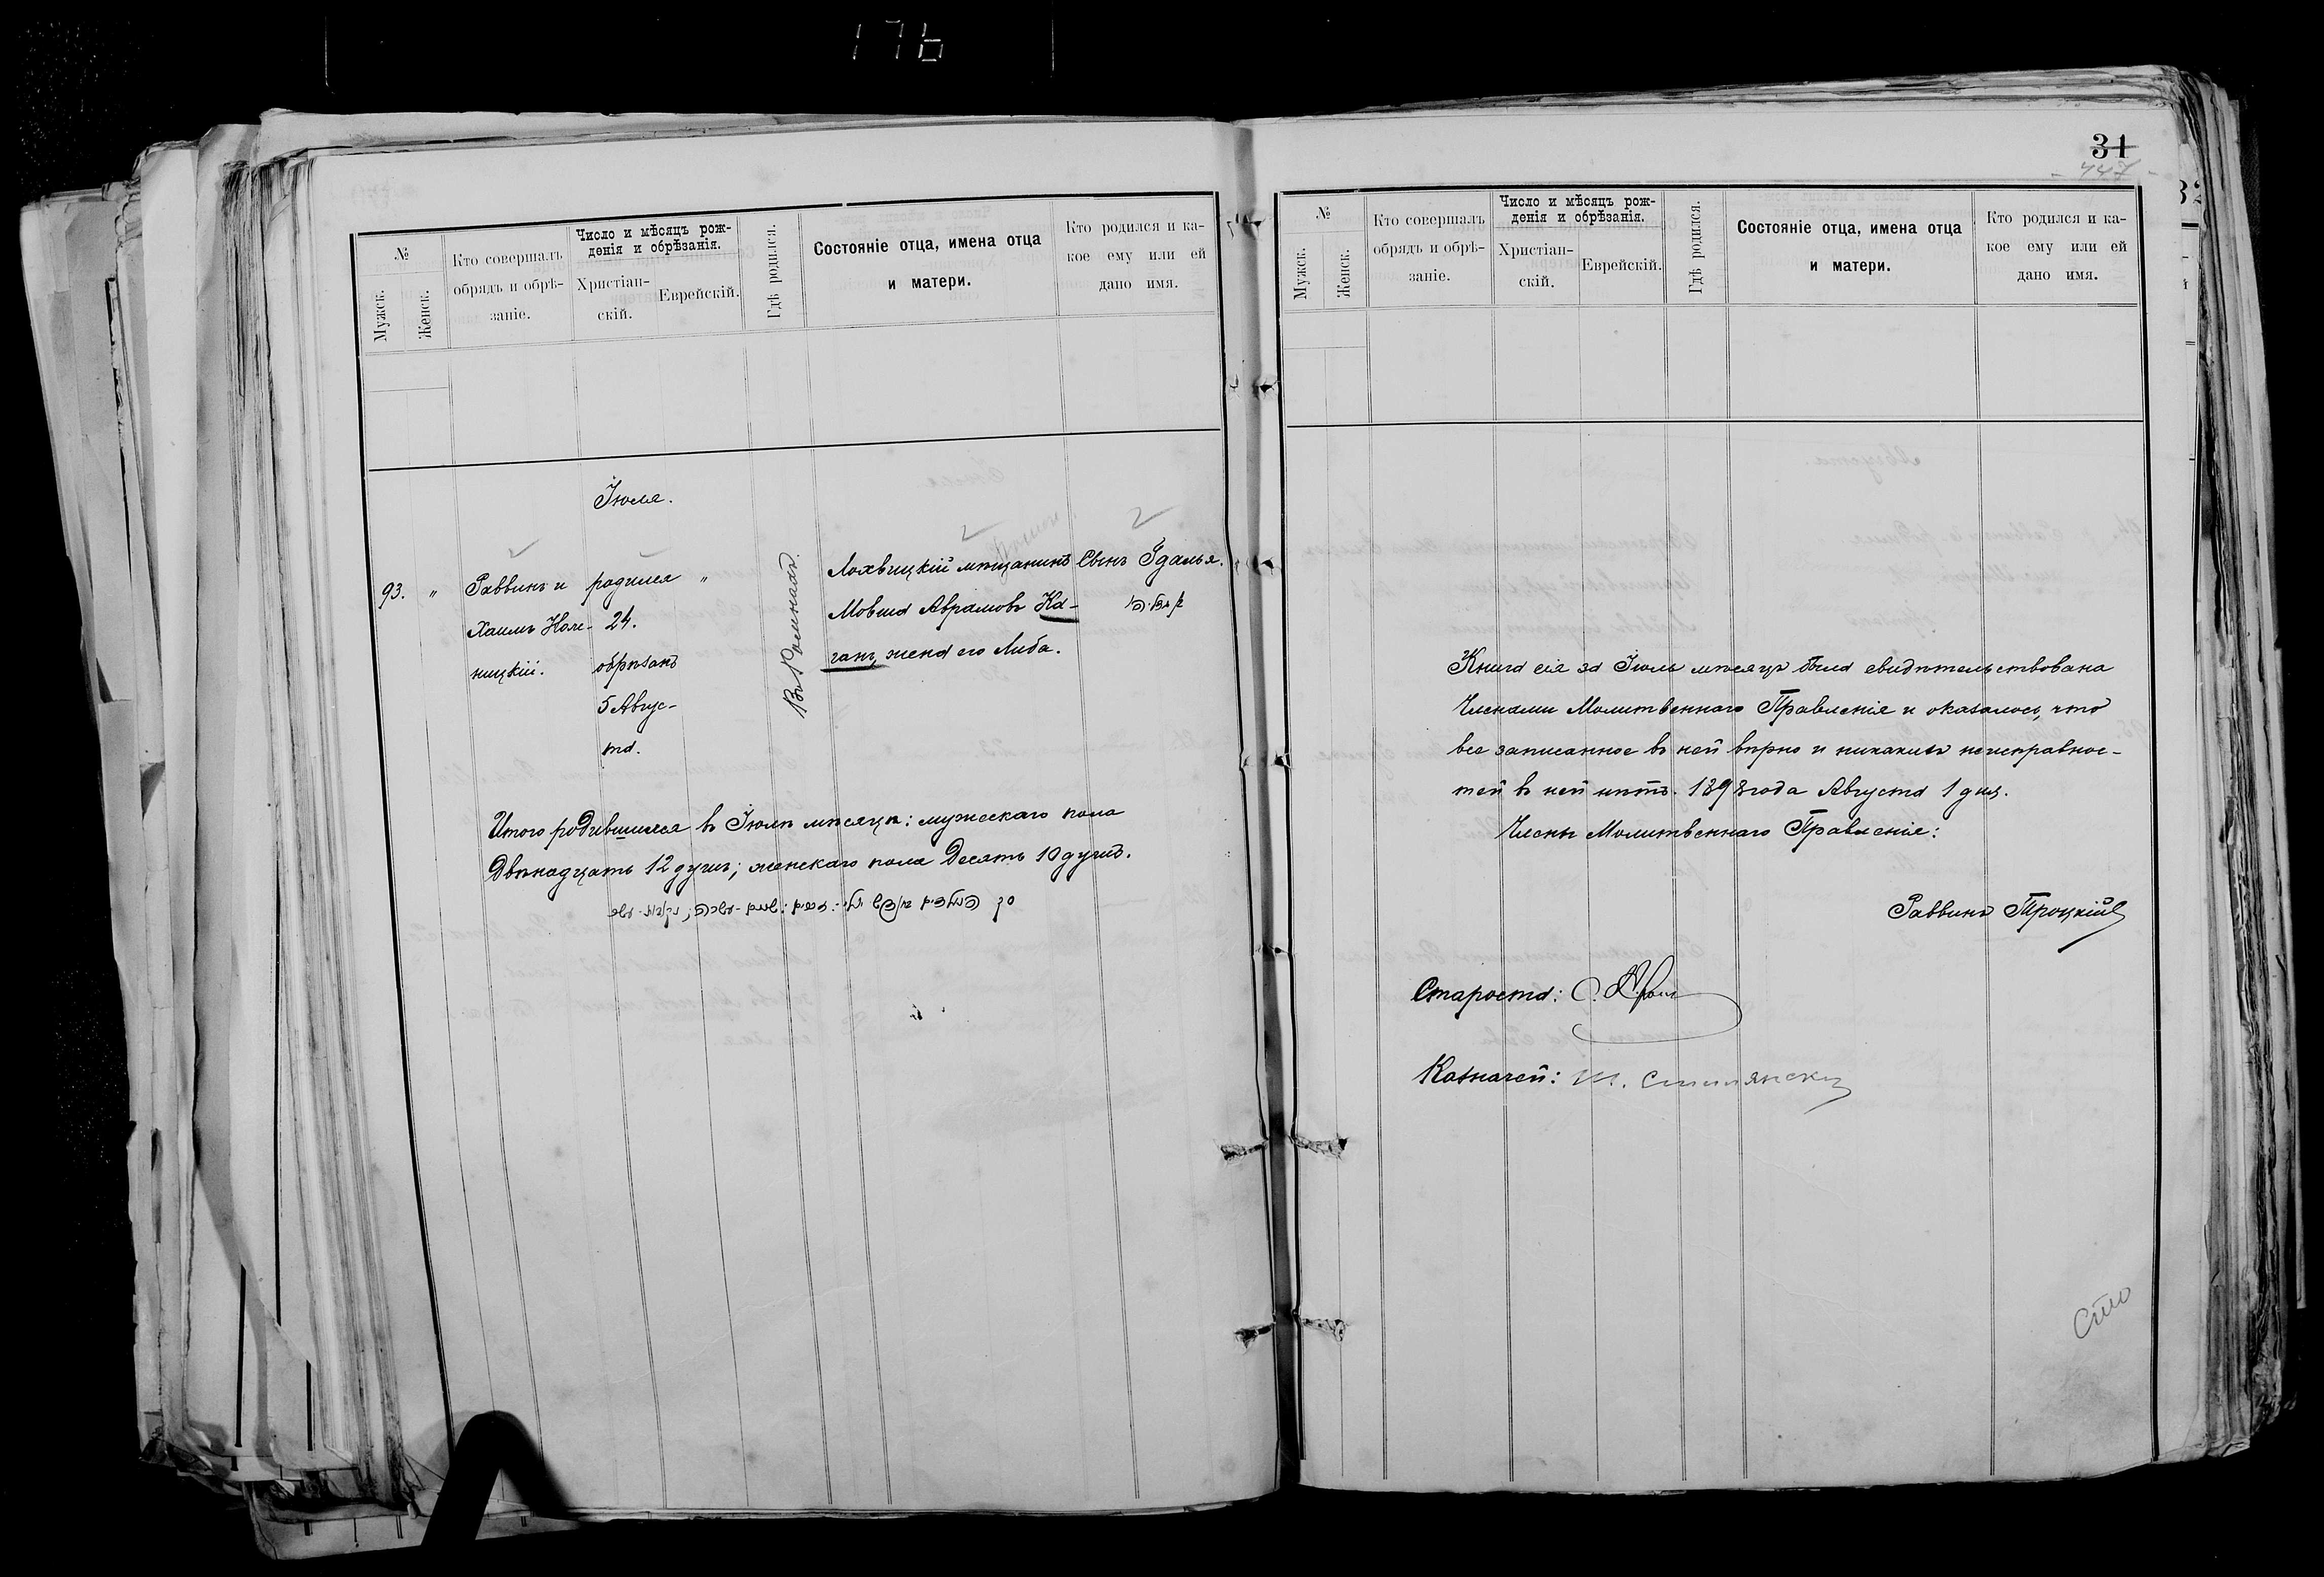 176
№
Мужск.
Женск.
Кто совершалъ
обрядъ и обрѣ-
заніе.
Число и мѣсяцъ рож-
денія и обрѣзанія.
Христіан-
скій.
Еврейскій.
Гдѣ родился.
Состояніе отца, имена отца
и матери.
Кто родился и ка-
кое ему или ей
дано имя.
Іюля.
93. "
Раввинъ и
Хаимъ
ницкій.
родился "
24.
обрѣзанъ
5 Авгус-
та.
Въ Ромнахъ.
Лохвицкій мѣщанинъ
Мовша Абрамовъ Ка-
ганъ, жена его Либа.
Сынъ Гдалья.
Итого родившихся въ Іюлѣ мѣсяцѣ: мужескаго пола
Двѣнадцать 12 душъ; женскаго пола Десять 10 душъ.
31
- 447 -
№
Мужск.
Женск.
Кто совершалъ
обрядъ и обрѣ-
заніе.
Число и мѣсяцъ рож-
денія и обрѣзанія.
Христіан-
скій.
Еврейскій.
Гдѣ родился.
Состояніе отца, имена отца
и матери.
Кто родился и ка-
кое ему или ей
дано имя.
Книга сія за Іюль мѣсяцъ была свидѣтельствована
Членами Молитвеннаго Правленія и оказалось, что
все записанное въ ней вѣрно и никакихъ неисправнос-
тей въ ней нѣтъ. 1898 года Августа 1 дня.
Члены Молитвеннаго Правленія:
Раввинъ Троцкій
Староста:
Казначей:
32